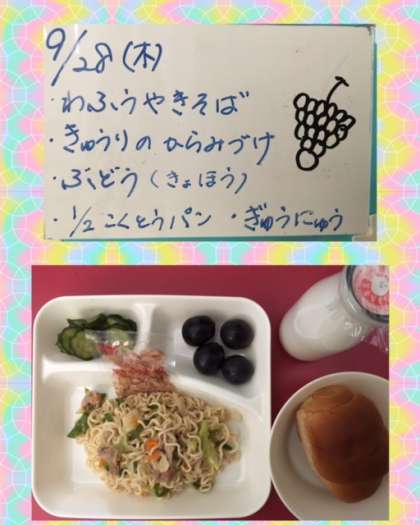 9/28(木)
・わふうやきそば
・きゅうりのからみづけ
・ぶどう(きょほう)
・1/2こくとうパン ・ぎゅうにゅう